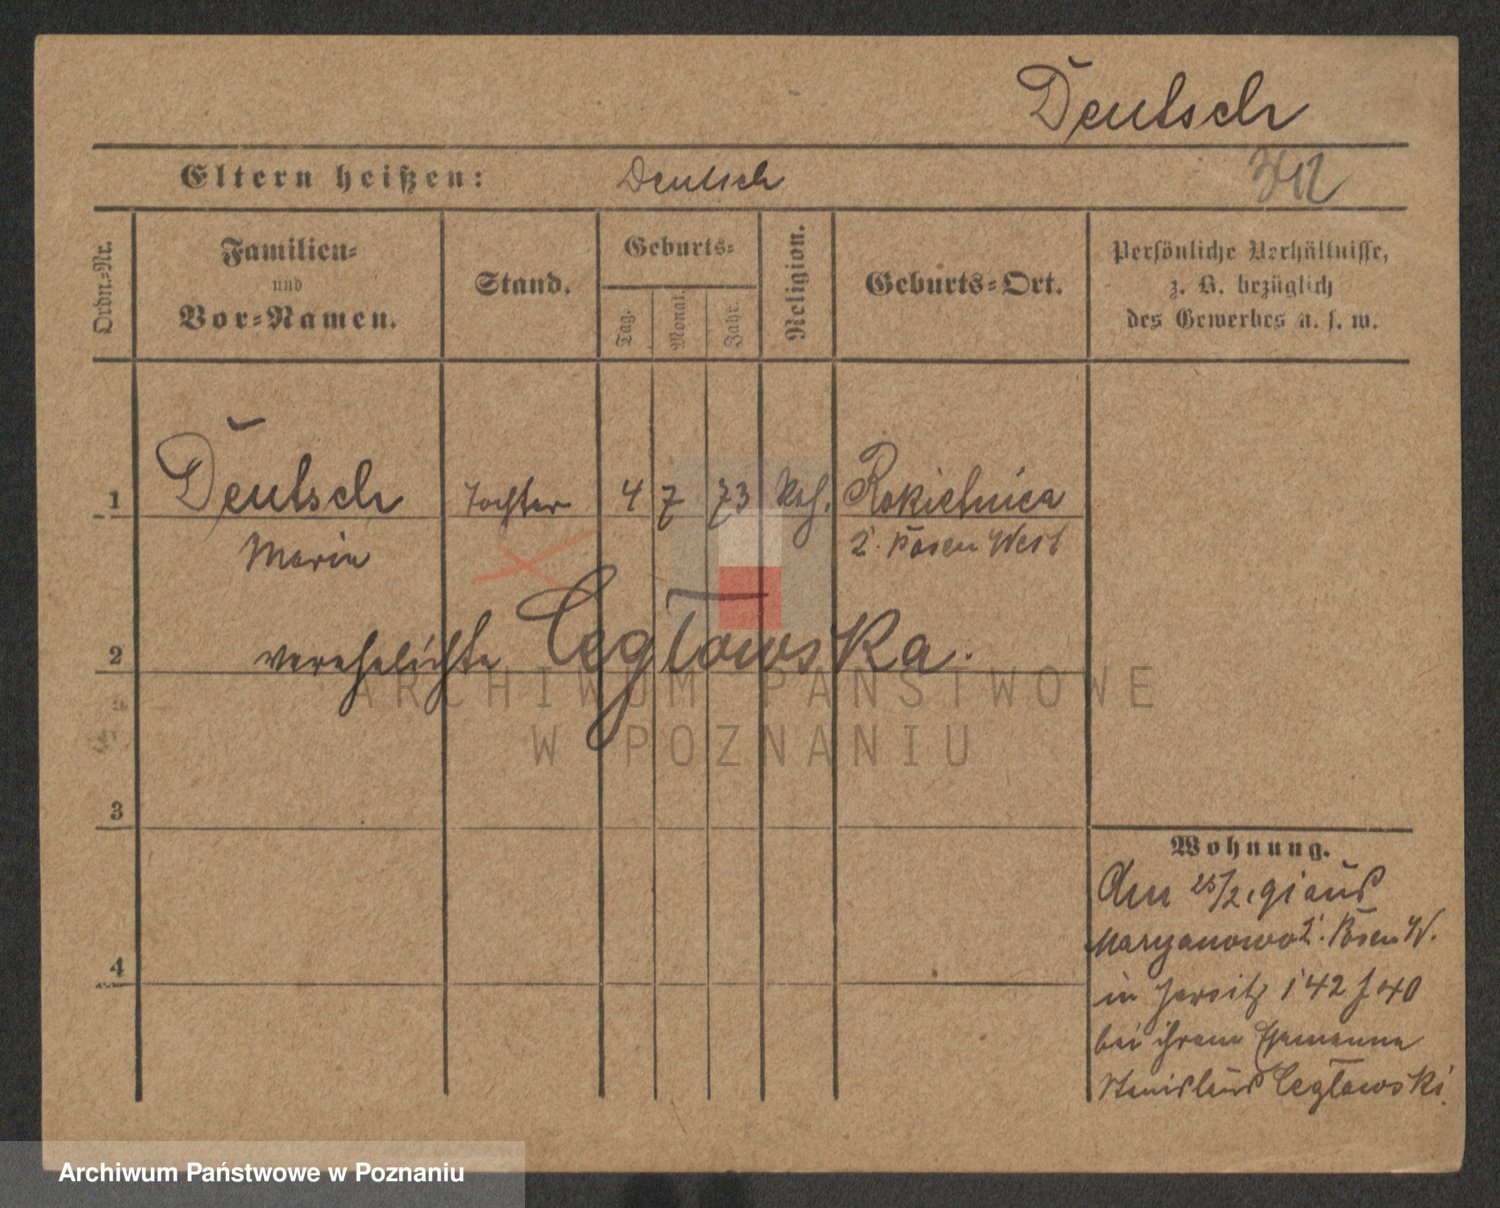 Deutsch
Eltern heißen: Deutsch
Ordn.-Nr.
Familien-
und
Vor-Namen.
Stand.
Geburts-
Tag.
Monat.
Jahr.
Religion.
Geburts-Ort.
Persönliche Verhältnisse,
z. B. bezüglich
des Gewerbes u. s. w.
1 Deutsch Tochter 4 7 73 Kath. Rokietnica
Marie Posen West
2 verehelichte Cegłowska.
ARCHIWUM PAŃSTWOWE
W POZNANIU
3
4
Wohnung.
Am 25/2. 91 aus
Maryanowo Posen W.
in Jersitz 142 J 40
bei ihrem Ehemanne
Stanislaus Cegłowski.
Archiwum Państwowe w Poznaniu